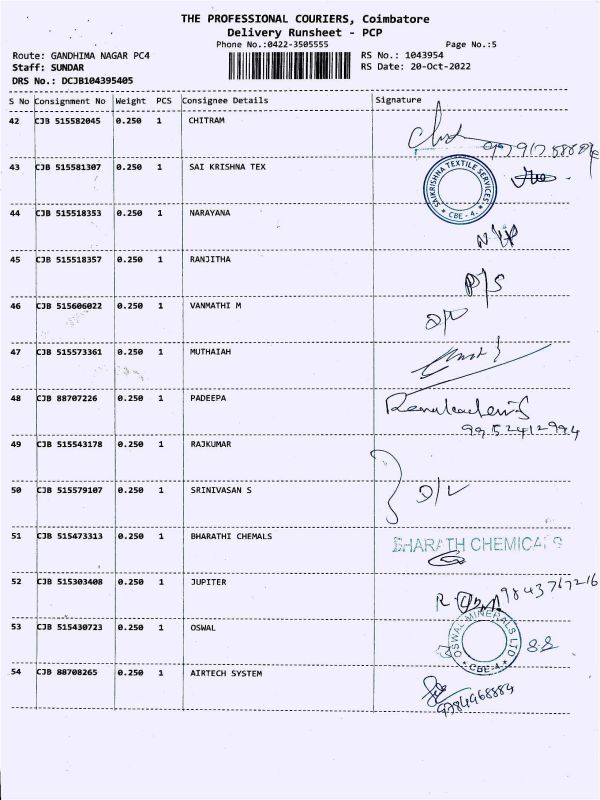 THE PROFESSIONAL COURIERS, Coimbatore
Delivery Runsheet - PCP
Phone No.:0422-3505555 Page No.:5
Route: GANDHIMA NAGAR PC4 RS No.: 1043954
Staff: SUNDAR RS Date: 20-Oct-2022
DRS No.: DCJB104395405
S No Consignment No Weight PCS Consignee Details Signature
42 CJB 515582045 0.250 1 CHITRAM
43 CJB 515581307 0.250 1 SAI KRISHNA TEX
SAIKRISHNA TEXTILE SERVICES
* CBE - 4. *
44 CJB 515518353 0.250 1 NARAYANA
45 CJB 515518357 0.250 1 RANJITHA
P/S
46 CJB 515606022 0.250 1 VANMATHI M
47 CJB 515573361 0.250 1 MUTHAIAH
48 CJB 88707226 0.250 1 PADEEPA
9952412994
49 CJB 515543178 0.250 1 RAJKUMAR
50 CJB 515579107 0.250 1 SRINIVASAN S D/L
51 CJB 515473313 0.250 1 BHARATHI CHEMALS BHARATH CHEMICALS
52 CJB 515303408 0.250 1 JUPITER 9843767216
53 CJB 515430723 0.250 1 OSWAL
OSWAL MINERALS LTD
* CBE-4 *
54 CJB 88708265 0.250 1 AIRTECH SYSTEM